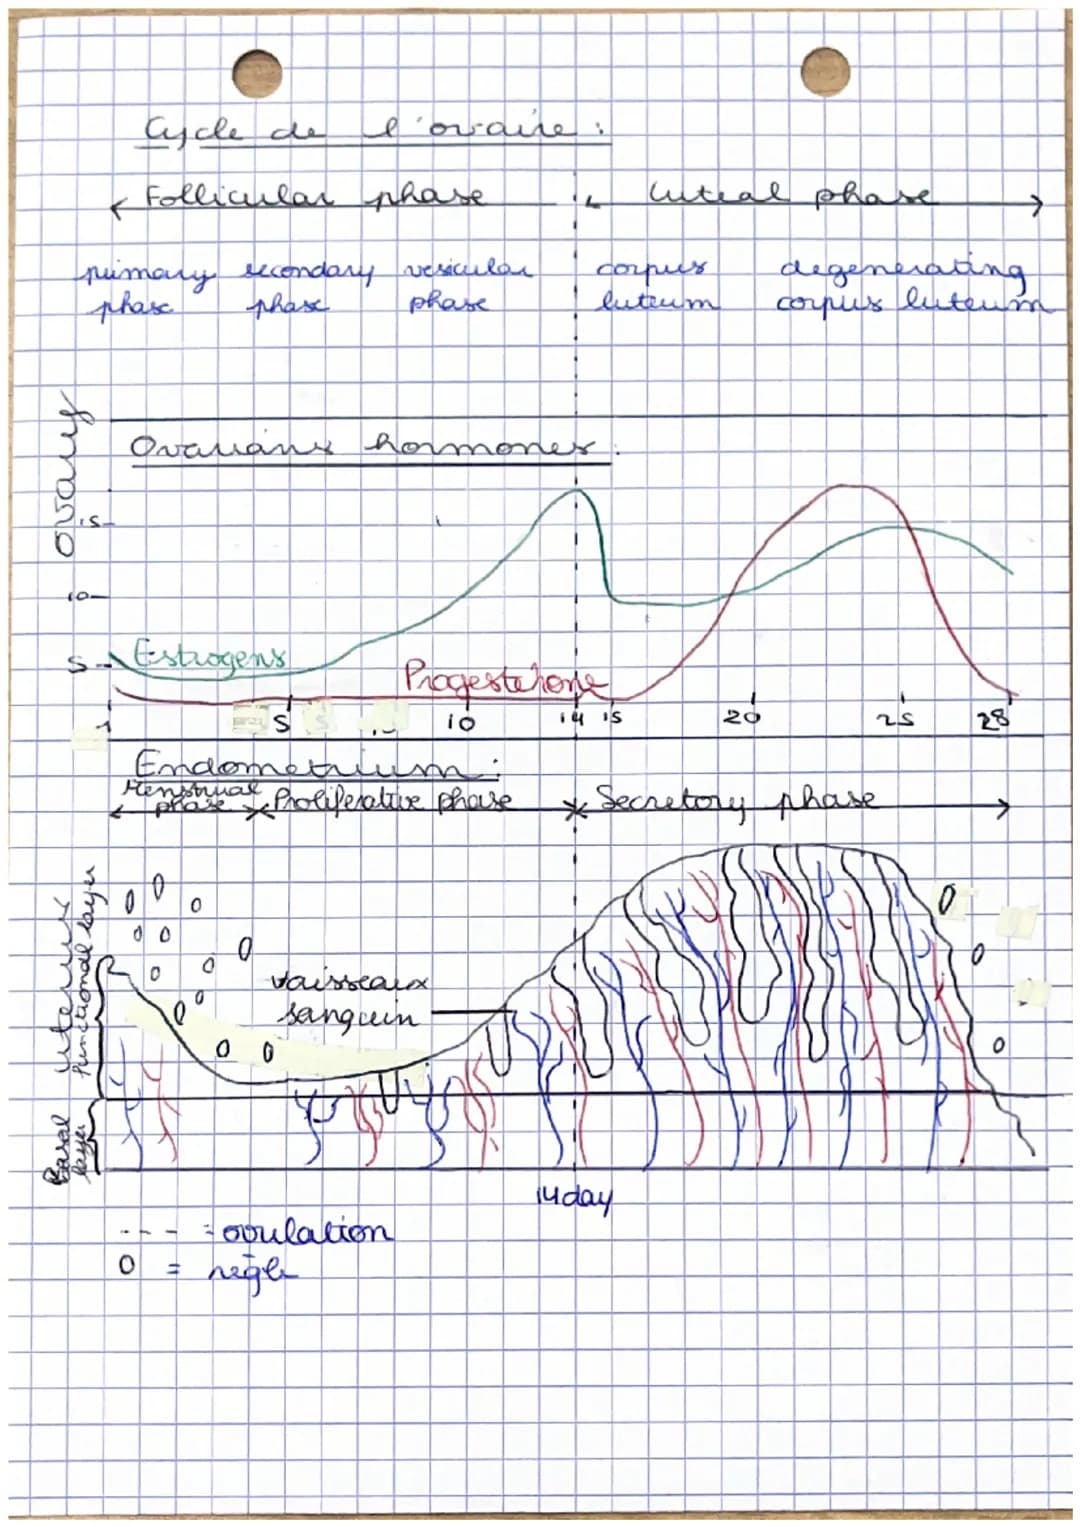 Cycle de l'ovaire :
Follicular phase luteal phase
primary secondary vesicular corpus degenerating
phase phase phase luteum corpus luteum
Ovary
Ovarians hormones :
15
10
5
Estrogens
Progesterone
1 5 10 14 15 20 25 28
Endometrium :
Menstrual
phase Proliferative phase Secretory phase
uterus
functional layer
Basal
layer
vaisseaux
sanguin
14 day
--- = ovulation
O = règle